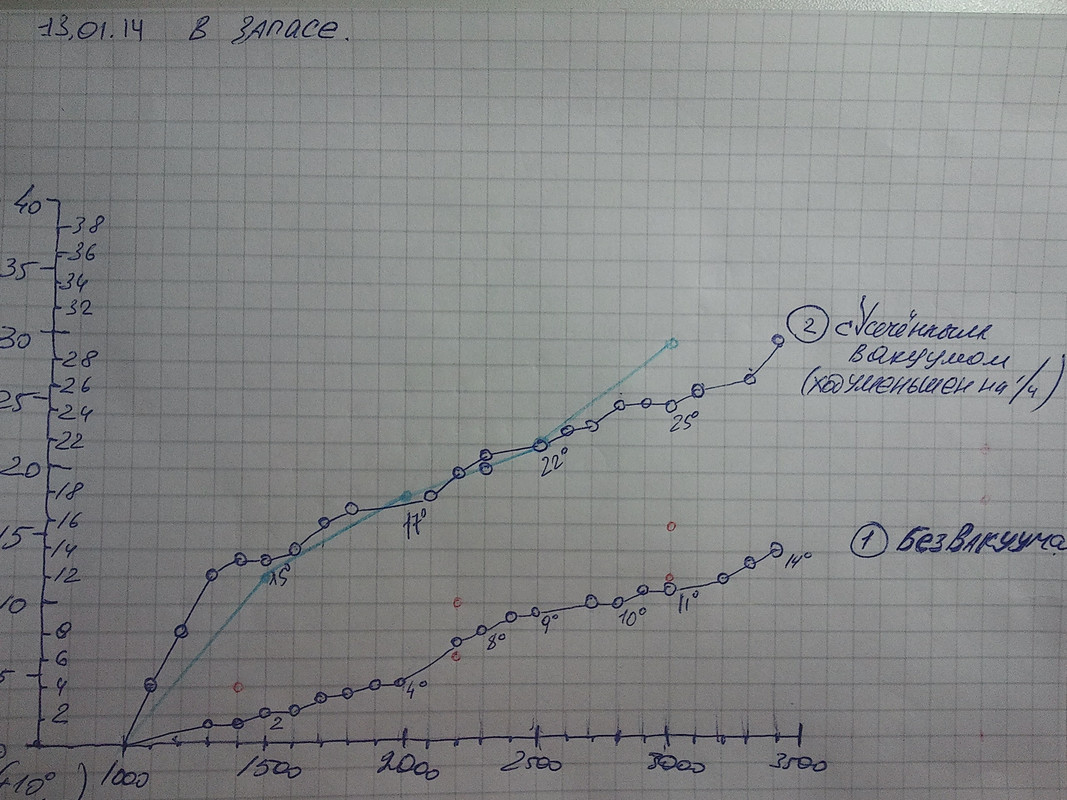 13.01.14 В ЗАПАСЕ.
40
38
36
35
34
32
30
28
26
25
24
22
20
18
16
15
14
12
10
8
6
5
4
2
0
(+10° )
1000 1500 2000 2500 3000 3500
② с усечённым
вакуумом
(ход уменьшен на 1/4)
25°
22°
17°
15°
① Без вакуума
14°
11°
10°
9°
8°
4°
2